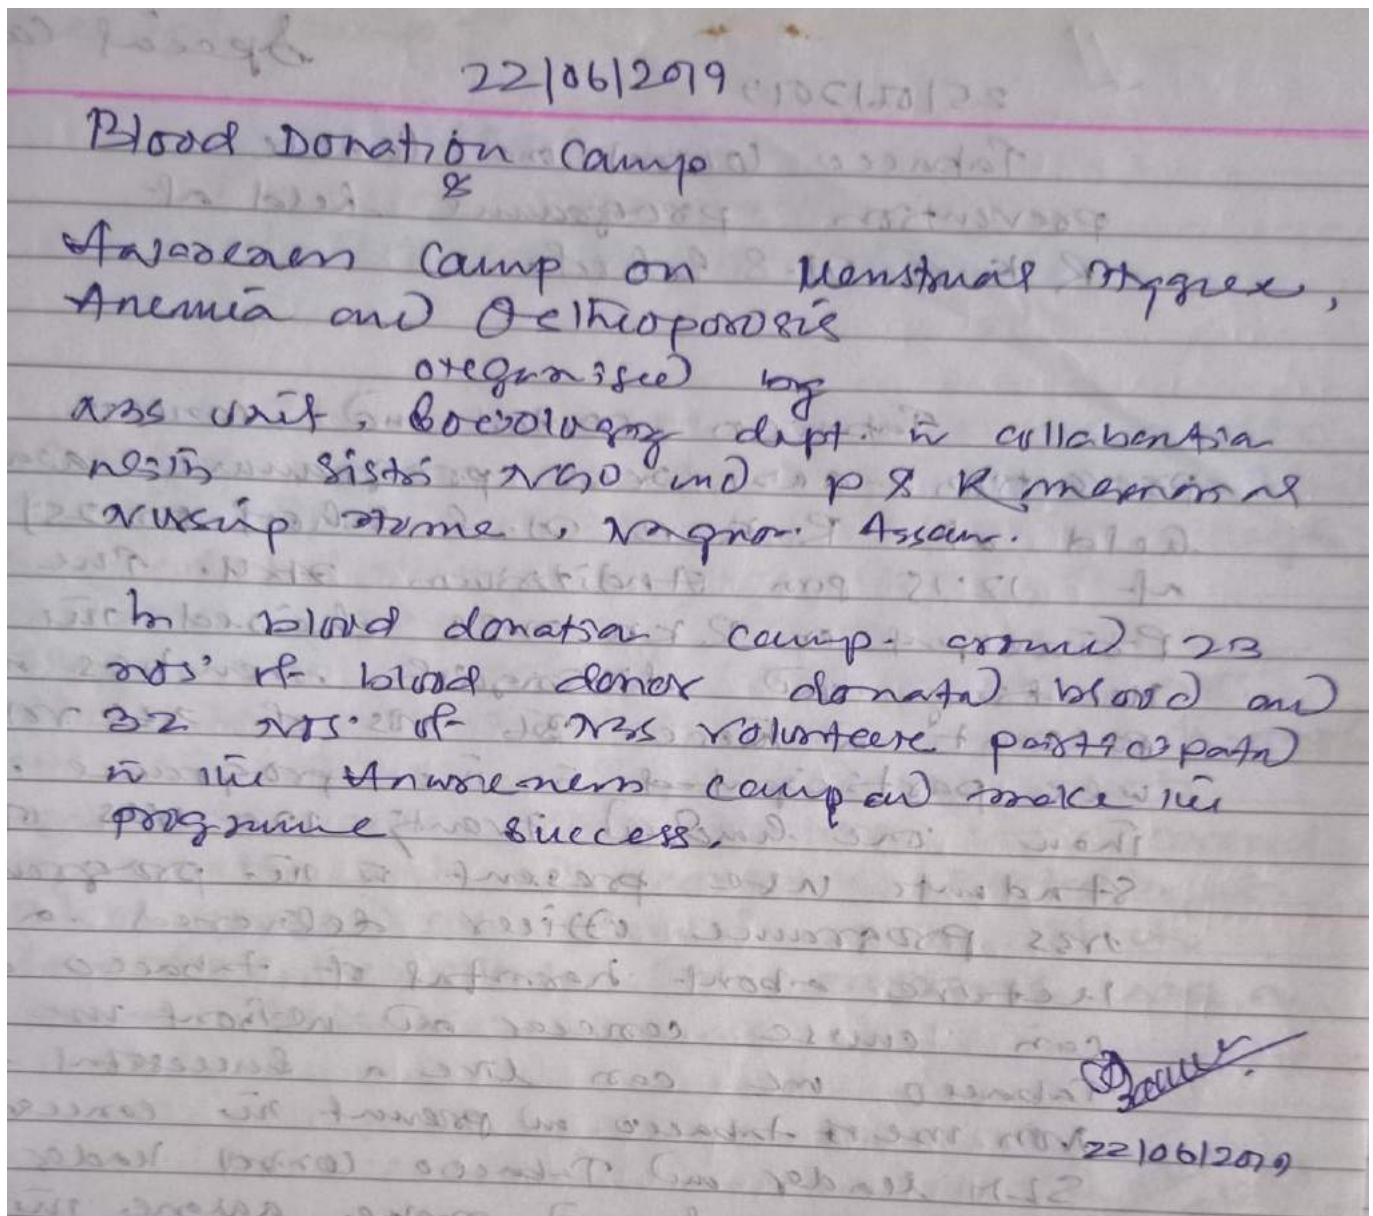 22/06/2019
Blood Donation Camp
&
Awareness Camp on Menstrual Hygiene,
Anemia and Ostheoporosis
organised by
NSS Unit, Sociology dept. in collaboration
with NGO and P & K memorial
Nursing Home, Nagaon. Assam.
In blood donation camp around 23
nos. of blood donor donated blood and
32 nos. of NSS volunteers participated
in the Awareness camp and make the
programme success.
22/06/2019